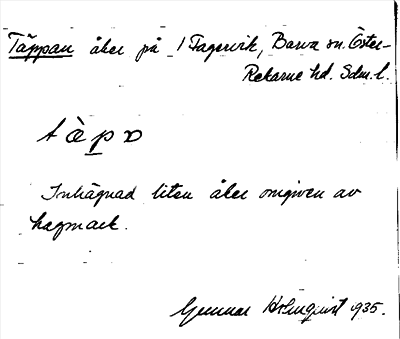 Täppan åker på 1 Fagervik, Barva sn. Öster-
Rekarne hd. Sdm. l.
tàpɒ
Inhägnad liten åker omgiven av
hagmark.
Gunnar Holmquist 1935.